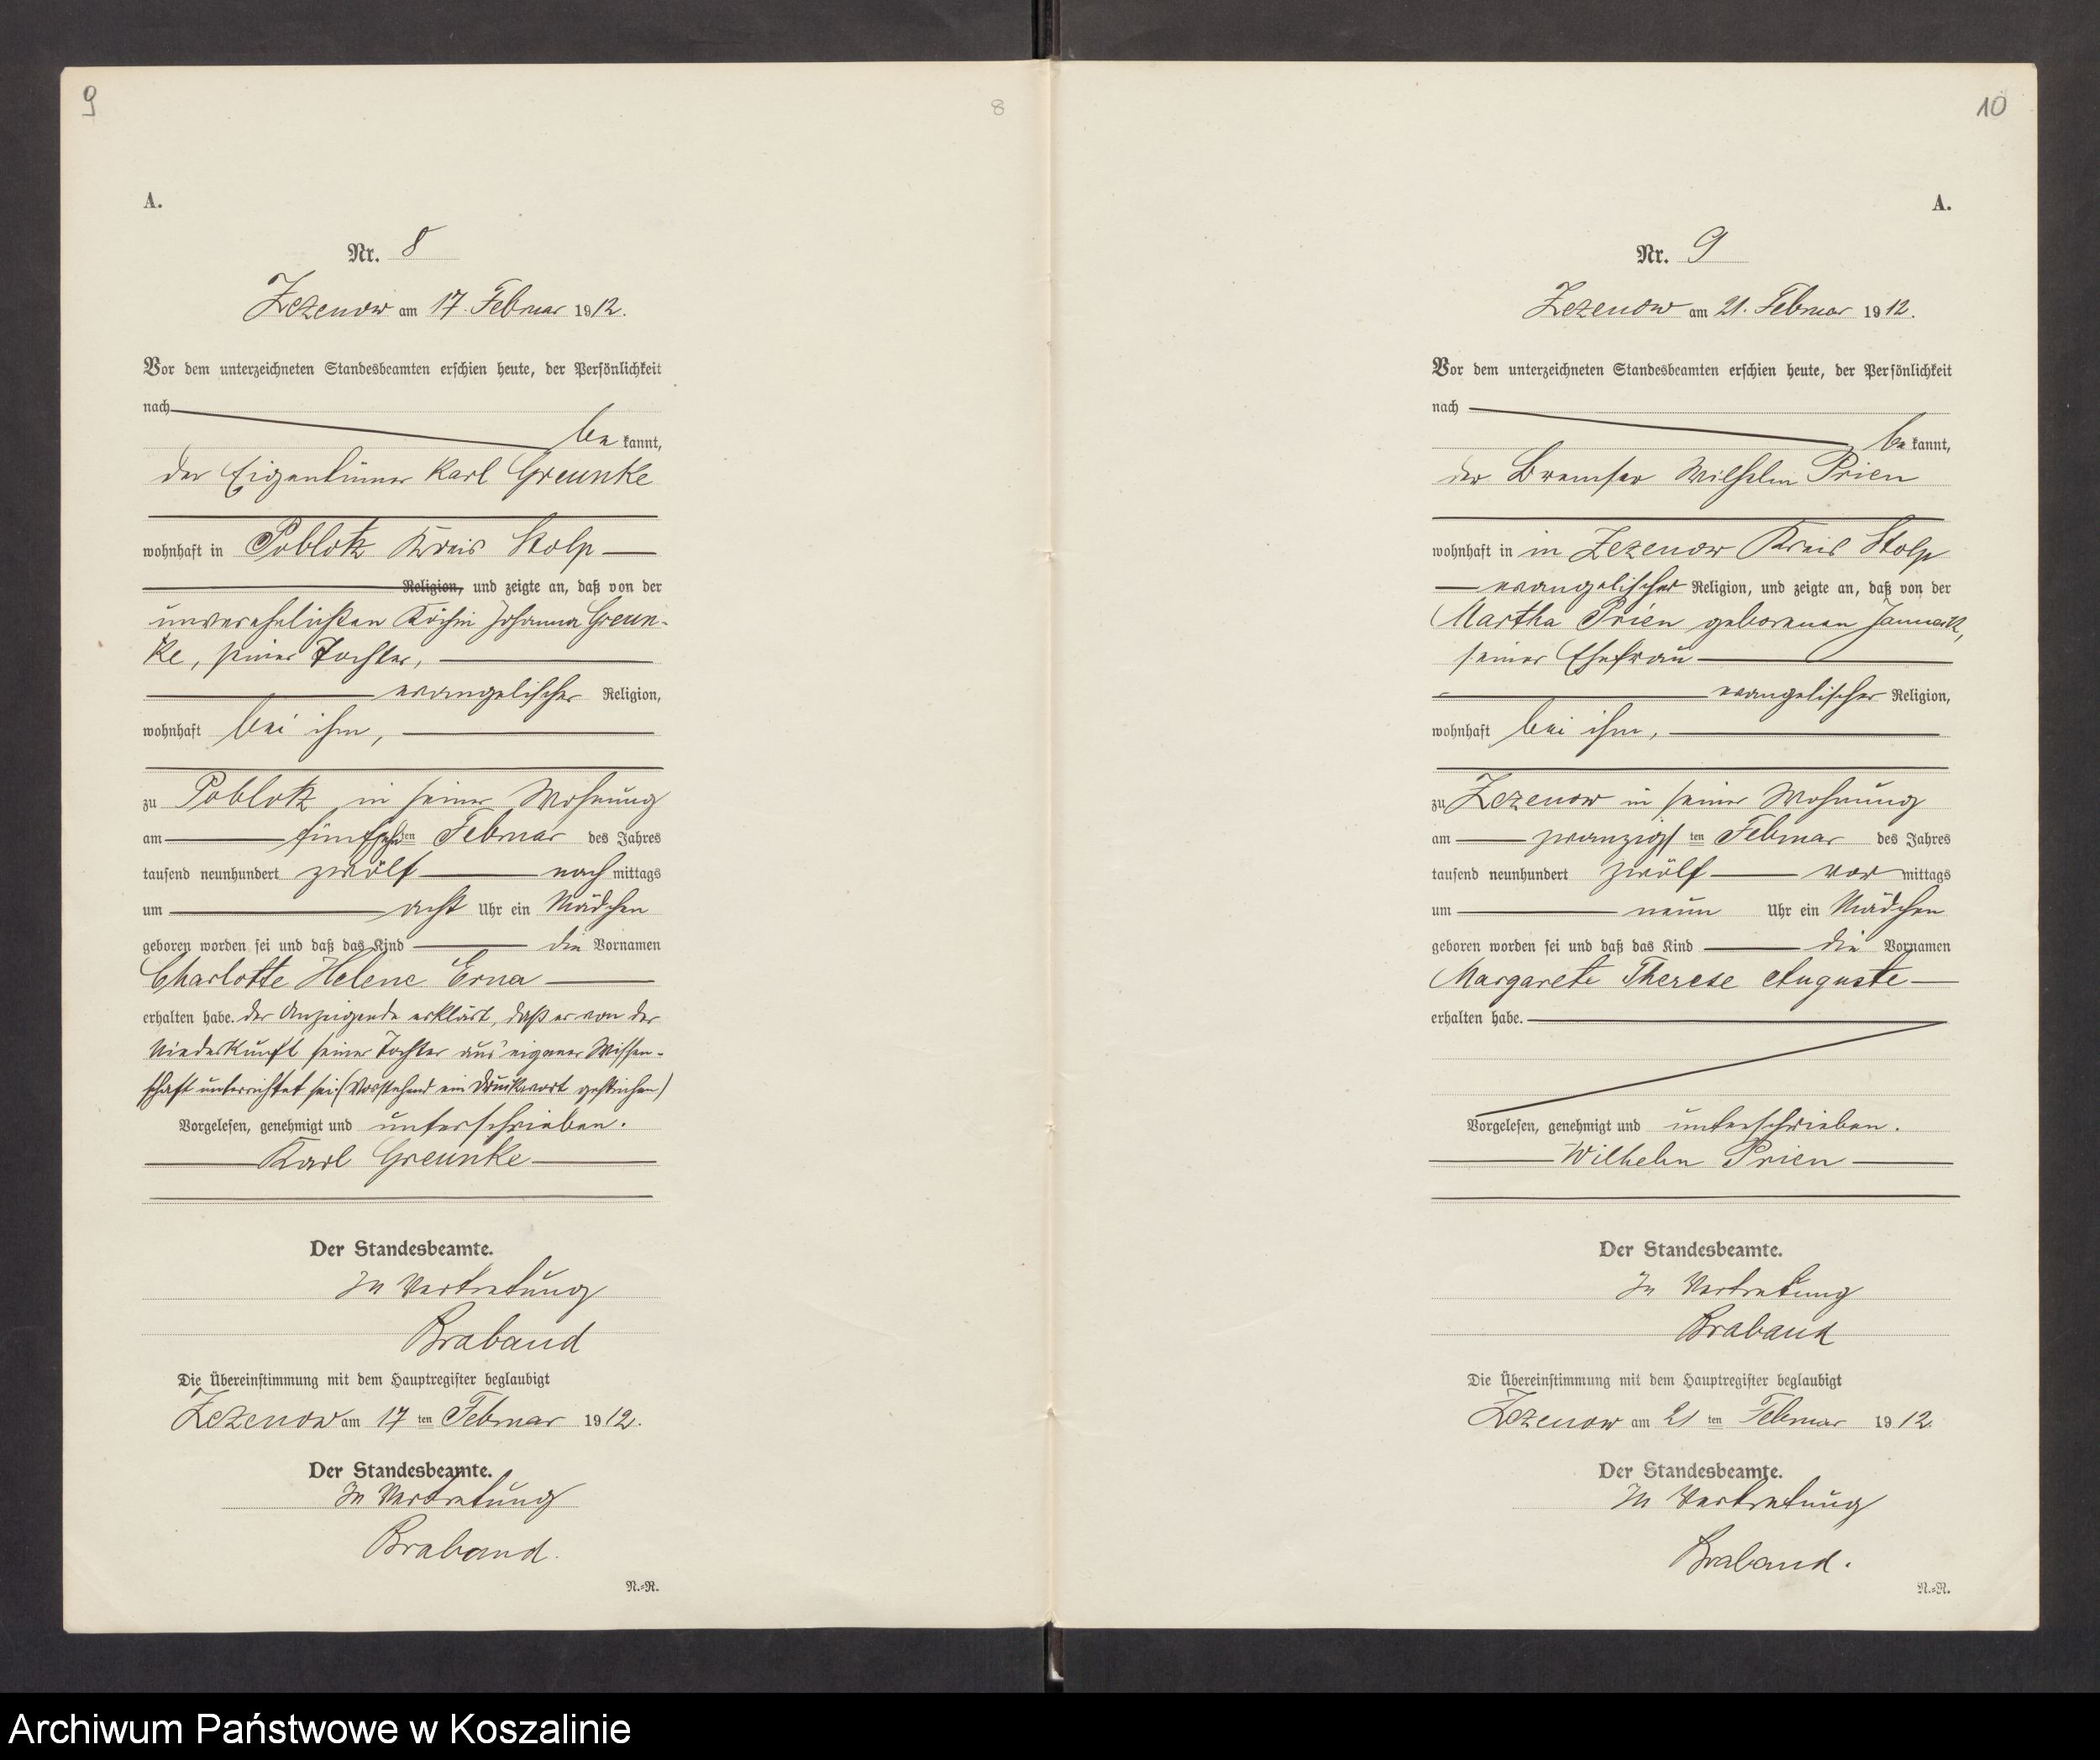 9
8
A.
Nr. 8
Zezenow am 17. Februar 1912.
Vor dem unterzeichneten Standesbeamten erschien heute, der Persönlichkeit
nach
be kannt,
der Eigentümer Karl Greunke
wohnhaft in Poblotz Kreis Stolp
Religion, und zeigte an, daß von der
unverehelichten Köchin Johanna Greun-
ke, seiner Tochter,
evangelischer Religion,
wohnhaft bei ihm,
zu Poblotz in seiner Wohnung
am fünfzehnten Februar des Jahres
tausend neunhundert zwölf nachmittags
um acht Uhr ein Mädchen
geboren worden sei und daß das Kind die Vornamen
Charlotte Helene Erna
erhalten habe. Der Anzeigende erklärt, daß er von der
Niederkunft seiner Tochter aus eigener Wissen-
schaft unterrichtet sei (Vorstehend ein Druckwort gestrichen)
Vorgelesen, genehmigt und unterschrieben.
Karl Greunke
Der Standesbeamte.
In Vertretung
Braband
Die Übereinstimmung mit dem Hauptregister beglaubigt
Zezenow am 17 ten Februar 1912.
Der Standesbeamte.
In Vertretung
Braband.
N.=R.
10
A.
Nr. 9
Zezenow am 21. Februar 1912.
Vor dem unterzeichneten Standesbeamten erschien heute, der Persönlichkeit
nach
be kannt,
der Bremser Wilhelm Prien
wohnhaft in in Zezenow Kreis Stolp
evangelischer Religion, und zeigte an, daß von der
Martha Prien geborenen
seiner Ehefrau
evangelischer Religion,
wohnhaft bei ihm,
zu Zezenow in seiner Wohnung
am zwanzigsten Februar des Jahres
tausend neunhundert zwölf vormittags
um neun Uhr ein Mädchen
geboren worden sei und daß das Kind die Vornamen
Margarete Therese Auguste
erhalten habe.
Vorgelesen, genehmigt und unterschrieben.
Wilhelm Prien
Der Standesbeamte.
In Vertretung
Braband
Die Übereinstimmung mit dem Hauptregister beglaubigt
Zezenow am 21 ten Februar 1912.
Der Standesbeamte.
In Vertretung
Braband.
N.=R.
Archiwum Państwowe w Koszalinie